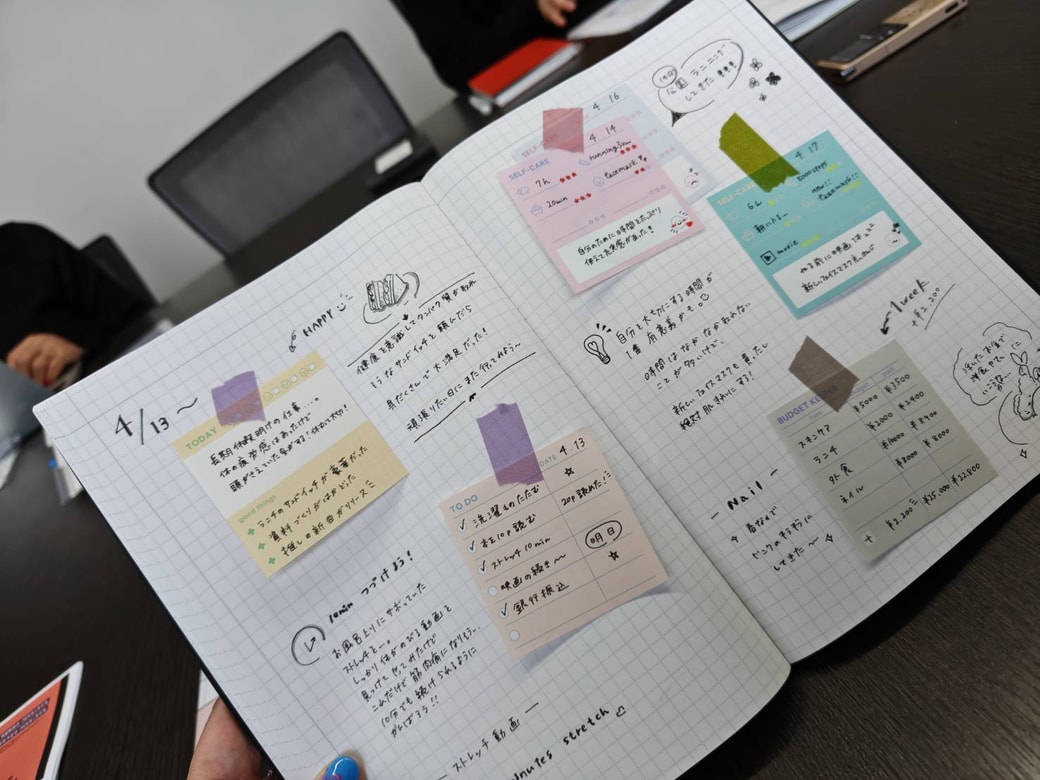 4/13〜
HAPPY
TODAY
長期休暇明けの仕事…。
体の疲労感はあったけど
頭がさえていた気がする!休むって大切!
good things
ランチのサンドイッチが豪華だった
資料づくりがはかどった
推しの新曲がリリース
健康を意識してタンパク質が取れ
そうなサンドイッチを頼んだら
具だくさんで大満足だった!
頑張りたい日にまた行ってみよう〜
TO DO
DATE 4 13
洗濯ものたたむ ☆
本を10p読む 20p読めた!!
ストレッチ10min
映画の続き〜 明日
銀行振込 ☆
10min つづけよう!
お風呂上りにサボっていた
ストレッチを…。
しっかり体がのびる動画を
見つけてやってみたけど
これだけで筋肉痛になりそう…
10分でも続けられるように
がんばろう!!
ーストレッチ動画ー
nutes stretch
4 16
公園ランニング
してきた
SELF-CARE
4 14
7h
running 5k
20min
facemask
自分のために時間をたっぷり
使えて充実感があった!
SELF-CARE
4 17
6h
5000steps
new!!
facemask!!
movie
ねる前に映画
新しいフェイスマスク
自分を大切にする時間が
1番有意義かも。
時間はなかなか取れない
ことが多いけど、
新しいフェイスマスクも買ったし
絶対肌きれいにする!
1week
BUDGET KEEPER
スキンケア ¥5000 ¥3500
ランチ ¥2000 ¥2400
外食
ネイル ¥8000 ¥8000
¥2,200 ¥25,000 ¥22,800
ーNailー
春なので
ピンクのキラキラに
してきた〜